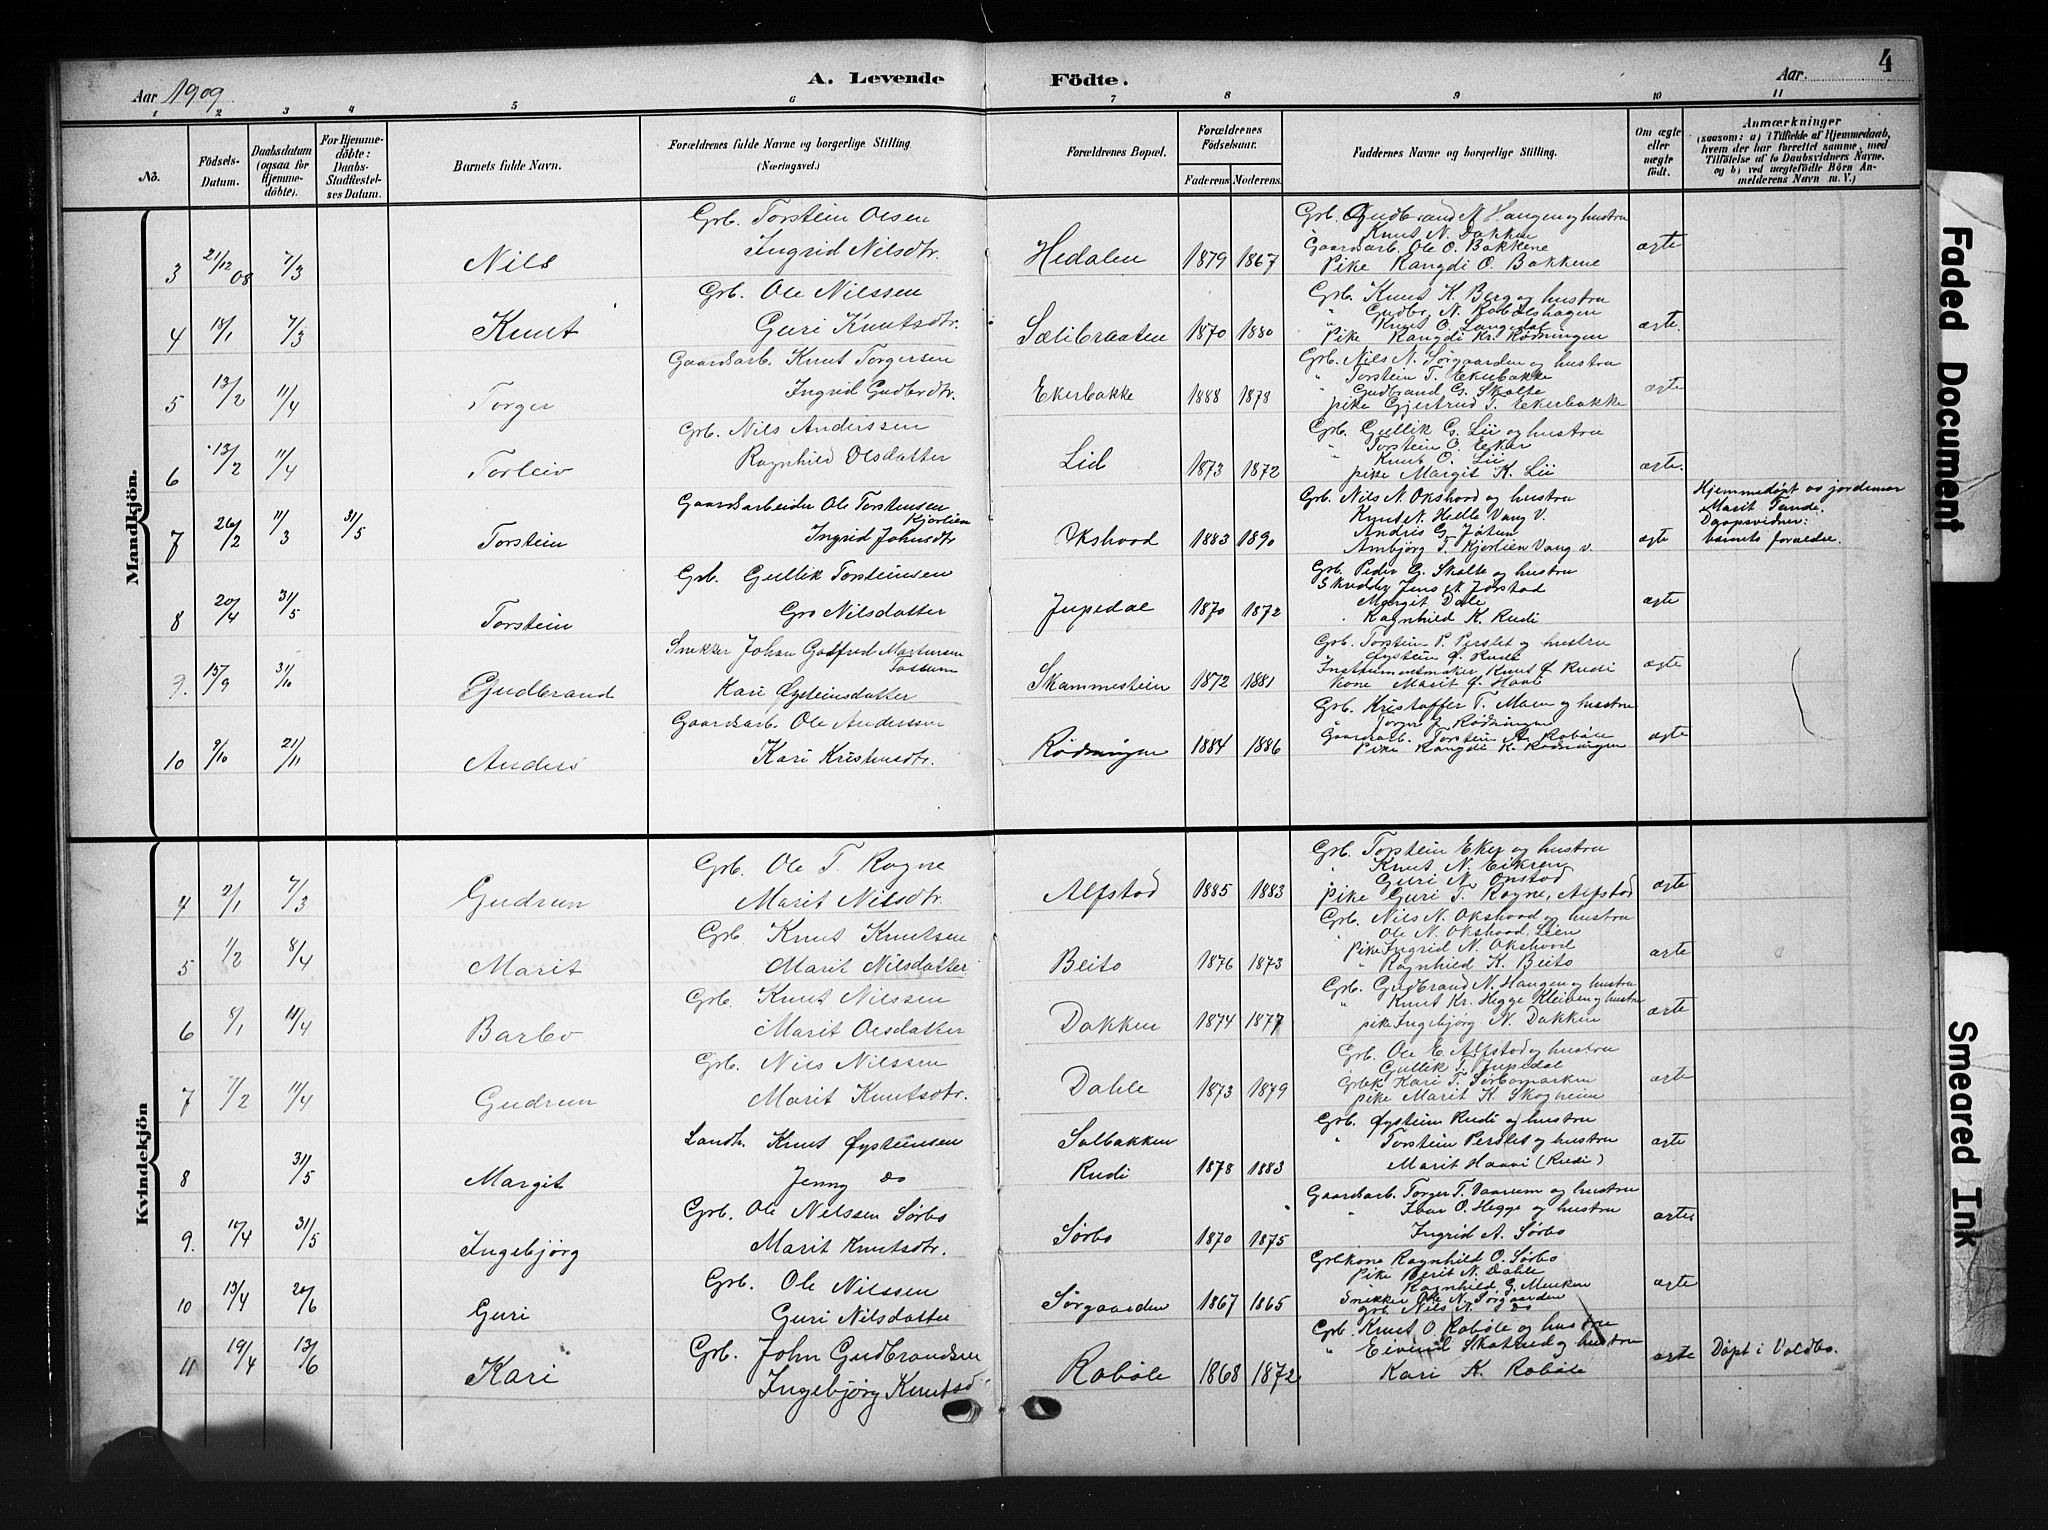 4
A. Levende Födte.
Aar 1909
Aar.
1 2 3 4 5 6 7 8 9 10 11
No.
Födsels-Datum.
Daabsdatum (ogsaa for Hjemmedöbte).
For Hjemmedöbte: Daabs-Stadfestelses Datum.
Barnets fulde Navn.
Forældrenes fulde Navne og borgerlige Stilling. (Næringsvei.)
Forældrenes Bopæl.
Forældrenes Födselsaar.
Faderens Moderens.
Faddernes Navne og borgerlige Stilling.
Om ægte eller uægte födt.
Anmærkninger
(saasom: a) i Tilfælde af Hjemmedaab,
hvem der har forrettet samme, med
Tilföielse af to Daabsvidners Navne.
og b) ved uægtefödte Börn An-
melderens Navn m. V.)
Mandkjön.
Grb. Torstein Olsen
Ingrid Nilsdtr.
3 21/12 08 7/3 Nils Hedalen 1879 1867
Grb. Gudbrand N. Haugen og hustru
Knut N. Dakken
Gaardsarb. Ole O. Bakkene
Pike Rangdi O. Bakkene
ægte
Grb. Ole Nilssen
Guri Knutsdtr.
4 18/1 7/3 Knut Sælibraaten 1870 1880
Grb. Knut K. Berg og hustru
" Gudbr. N. Robølshagen
" Knut O. Langedal
Pike Rangdi Kr. Rødningen
ægte.
Gaardsarb. Knut Torgersen
Ingrid Gudbrdtr.
5 13/2 11/4 Torger Ekerbakke 1888 1878
Grb. Nils N. Sørgaarden og hustru
" Torstein T. Ekerbakke
" Gudbrand G. Skolte
pike Gjertrud T. Ekerbakke
ægte
Grb. Nils Anderssen
Ragnhild Olsdatter
6 13/2 11/4 Torleiv Lid 1873 1872
Grb. Gullik G. Lii og hustru
" Torstein O. Eker
" Knut O. Lii
pike Margit K. Lii
ægte.
Gaardsarbeider Ole Torstensen
Kjørlien
Ingrid Johnsdtr
7 26/2 11/3 31/5 Torstein Okshovd 1883 1890
Grb. Nils N. Okshovd og hustru
Knut N. Helle Vang V.
Andris G. Jøtun
Ambjørg T. Kjørlien Vang v.
ægte
Hjemmedøpt av jordemor
Marit Tande.
Daapsvidner:
barnets forældre.
Grb. Gullik Torsteinsen
Gro Nilsdatter
8 20/4 31/5 Torstein Jupedal 1870 1872
Grb. Peder G. Skolte og hustru
Skredder Jens N. Jørstad
Margit Dale
Ragnhild K. Rudi
ægte
Snekker Johan Godfred Martinsen
Tossum
Kari Øysteinsdatter
9. 15/9 31/10 Gudbrand Skammestein 1872 1881
Grb. Torstein P. Perslet og hustru
" Øystein Ø. Rudi
Instrumentmaker Knut Ø. Rudi
Kone Marit Ø. Haavi
ægte
Gaardsarb. Ole Anderssen
Kari Kristensdtr.
10 9/10 21/11 Anders Rødningen 1884 1886
Grb. Kristoffer T. Moen og hustru
" Torger J. Rødningen
Gaardsarb. Torstein A. Robøle
Pike Rangdi K. Rødningen
ægte
Kvindekjön
Grb. Ole T. Rogne
Marit Nilsdtr.
4 2/1 7/3 Gudrun Alfstad 1885 1883
Grb. Torstein Eker og hustru
" Knut N. Eikren
" Guri N. Onstad
pike Guri T. Rogne, Alfstad
ægte
Grb. Knut Knutsen
Marit Nilsdatter
5 1/2 8/4 Marit Beito 1876 1873
Grb. Nils N. Okshovd og hustru
" Ole N. Okshovd, Lien
Pike Ingrid N. Okshovd
" Ragnhild K. Beito
ægte
Grb. Knut Nilssen
Marit Olsdatter
6 8/1 11/4 Barbo Dokken 1874 1877
Grb. Gudbrand N. Haugen og hustru
" Knut Kr. Hegge Kleiven og hustru
pike Ingebjørg N. Dokken
ægte
Grb. Nils Nilssen
Marit Knutsdtr.
7 7/2 11/4 Gudrun Dahle 1873 1879
Grb. Ole E. Alfstad og hustru
" Gullik T. Jupedal
Grbk Kari T. Sørbomarken
pike Marit K. Skogheim
ægte
Landh. Knut Øysteinsen
Jenny do
8 31/5 Margit Solbakken Rudi 1878 1883
Grb. Øystein Rudi og hustru
" Torstein Perslet og hustru
Marit Haavi (Rudi)
ægte
Grb. Ole Nilssen Sørbo
Marit Knutsdtr.
9. 14/4 31/5 Ingebjørg Sørbo 1870 1875
Gaardsarb. Torger T. Vaarum og hustru
" Ivar O. Hegge og hustru
Ingrid A. Sørbo
ægte
Grb. Ole Nilssen
Guri Nilsdatter
10 13/4 20/6 Guri Sørgaarden 1867 1865
Grbkone Ragnhild O. Sørbo
Pike Berit N. Dahle
" Ragnhild G. Merken
Snikker Ole N. Sørgaarden
grb. Nils N. do
ægte
Grb. John Gudbrandsen
Ingebjørg Knutsd
11 19/4 13/6 Kari Robøle 1868 1872
Grb. Knut O. Robøle og hustru
" Eivind Skattrud og hustru
Kari K. Robøle
ægte
Døpt i Voldbo.
Faded Document
Smeared Ink